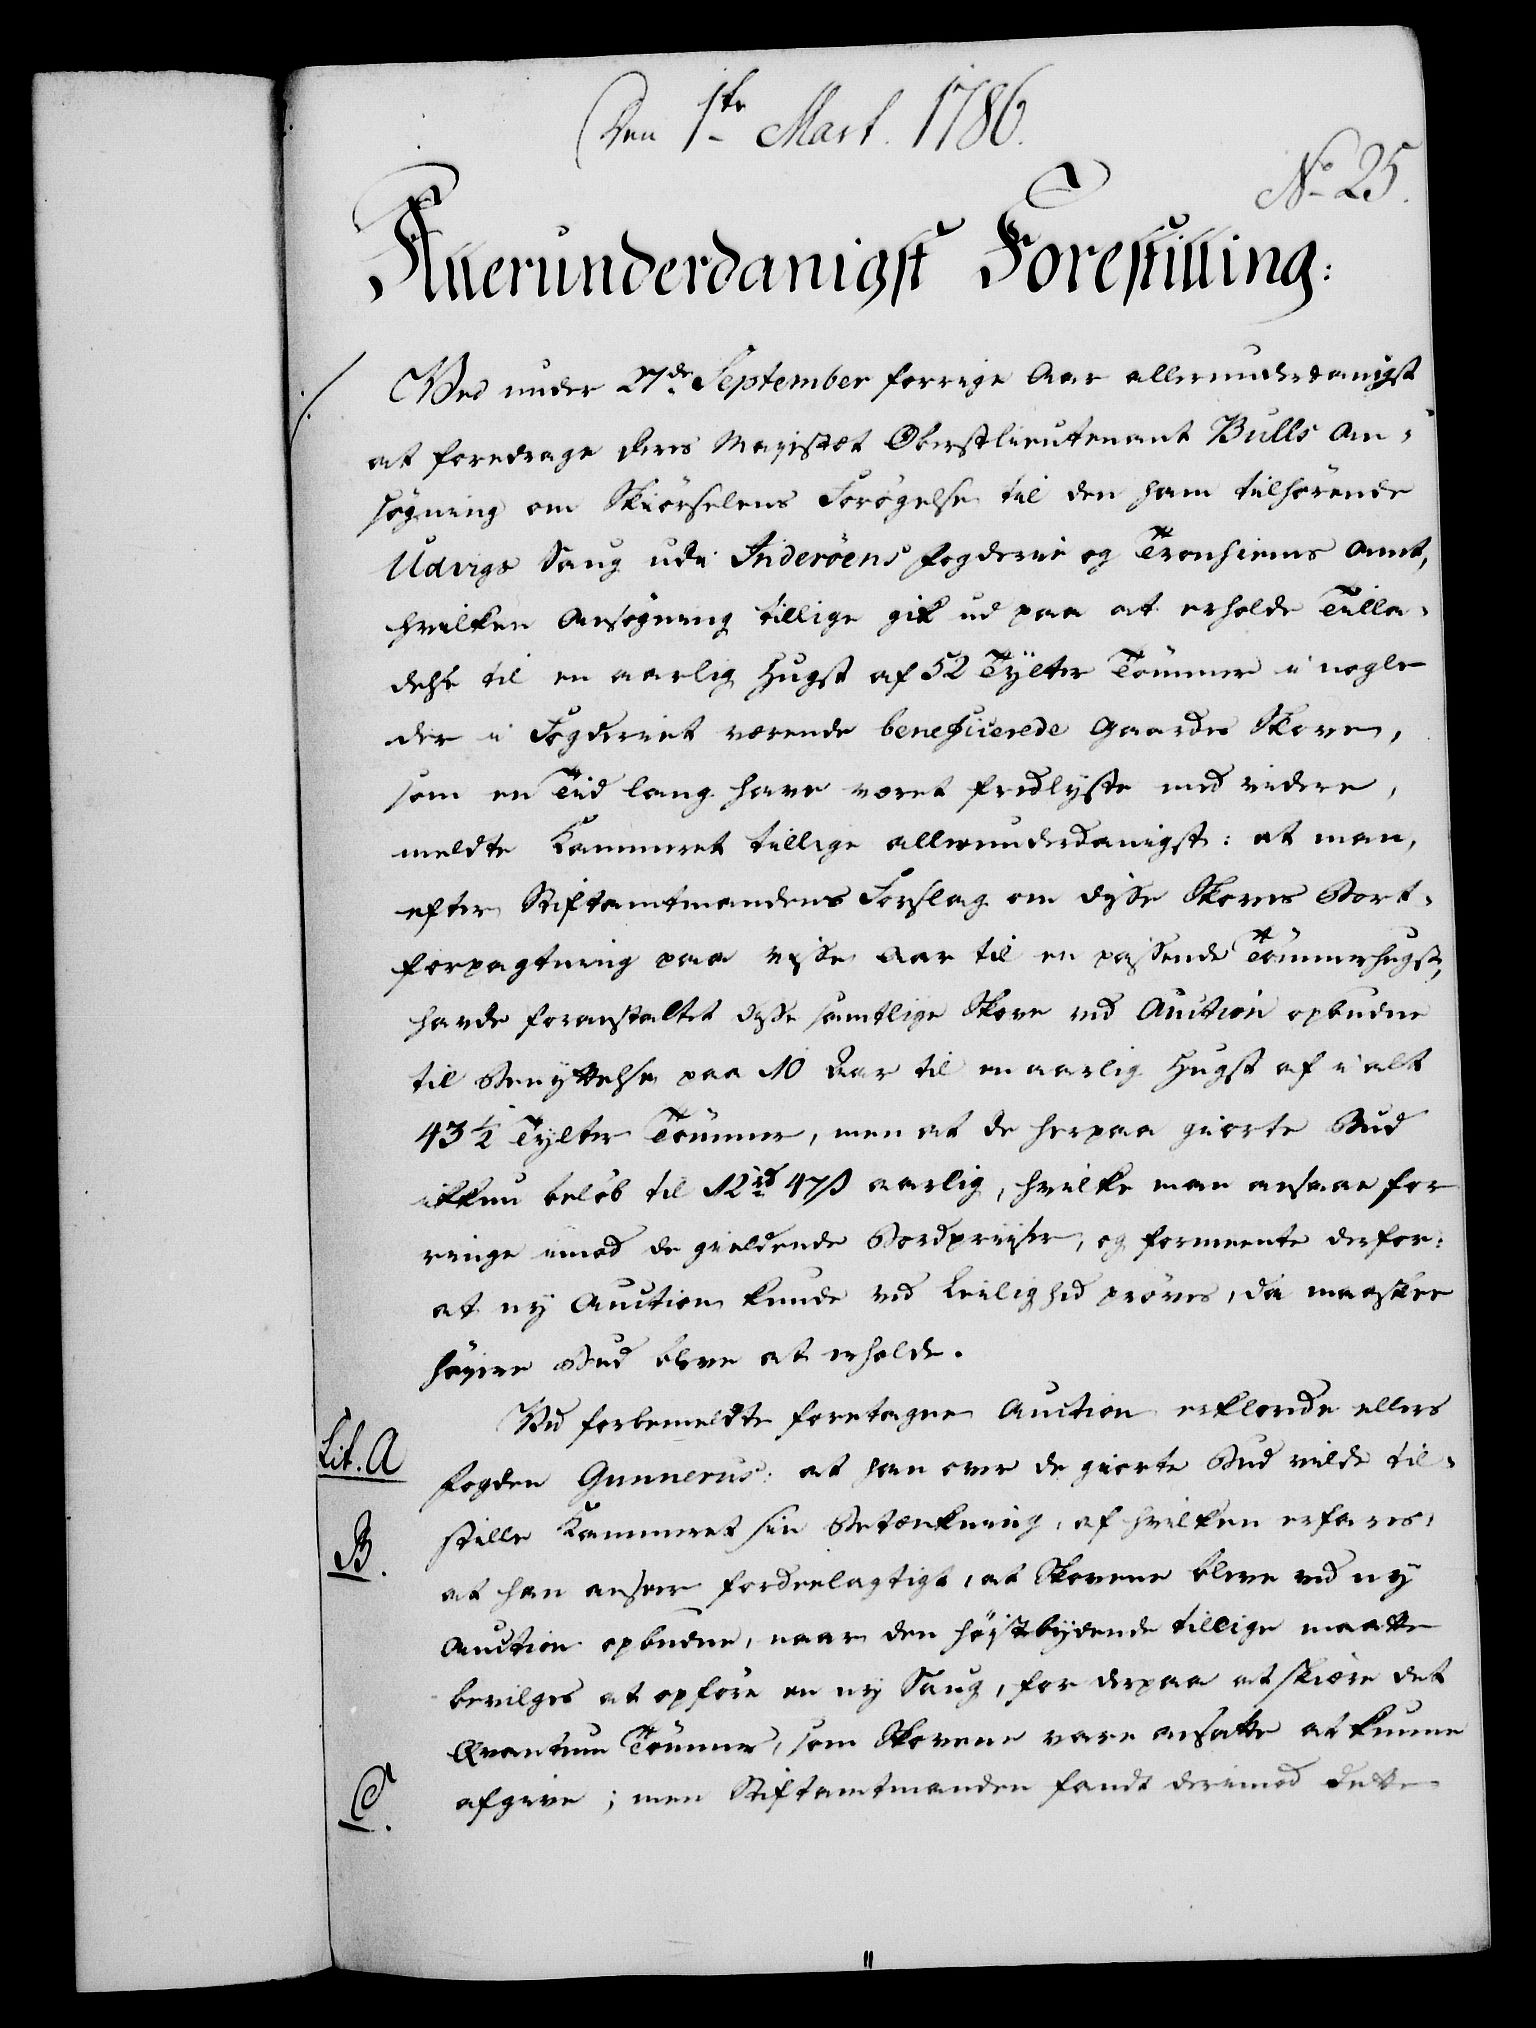 Den 1ste Mart. 1786.
No 25.
Allerunderdanigst Forestilling:
Ved under 27de September forrige Aar allerunderdanigst
at foredrage Deres Majestæt Oberstlieutenant Bulls An-
søgning om Skiørselens Forøgelse til den ham tilhørende
Udvigs Saug udi Inderöens Fogderie og Tronhiems Amt,
hvilken Ansøgning tillige gik ud paa at erholde Tilla-
delse til en aarlig Hugst af 52 Tylter Tømmer i nogle
der i Fogderiet værende beneficerede Gaardes Skove,
som en Tid lang have været fredlyste med videre,
meldte Kammeret tillige allerunderdanigst: at man,
efter Stiftamtmandens Forslag om disse Skoves Bort-
forpagtning paa visse Aar til en passende Tømmerhugst,
havde foranstaltet disse samtlige Skove ved Auction opbudne
til Benyttelse paa 10 Aar til en aarlig Hugst af i alt
43 1/2 Tylter Tømmer, men at de herpaa giorte Bud
ikkun beløb til 12 rd 47 ß aarlig, hvilke man ansaae for
ringe imod de gieldende Bordpriser, og formeente derfor:
at ny Auction kunde ved Leilighed prøves, da maaskee
høyere Bud bleve at erholde.
Ved forbemeldte foretagne Auction erklærede ellers
Lit. A
Fogden Gunnerus: at han over de giorte Bud vilde til-
stille Kammeret sin Betænkning, af hvilken erfares,
B.
at han anseer fordeelagtigt, at Skovene bleve ved ny
Auction opbudne, naar den højstbydende tillige maatte
bevilges at opføre en ny Saug, for derpaa at skiære det
Qvantum Tømmer, som Skovene vare ansatte at kunne
C.
afgive; men Stiftamtmanden fandt derimod dette